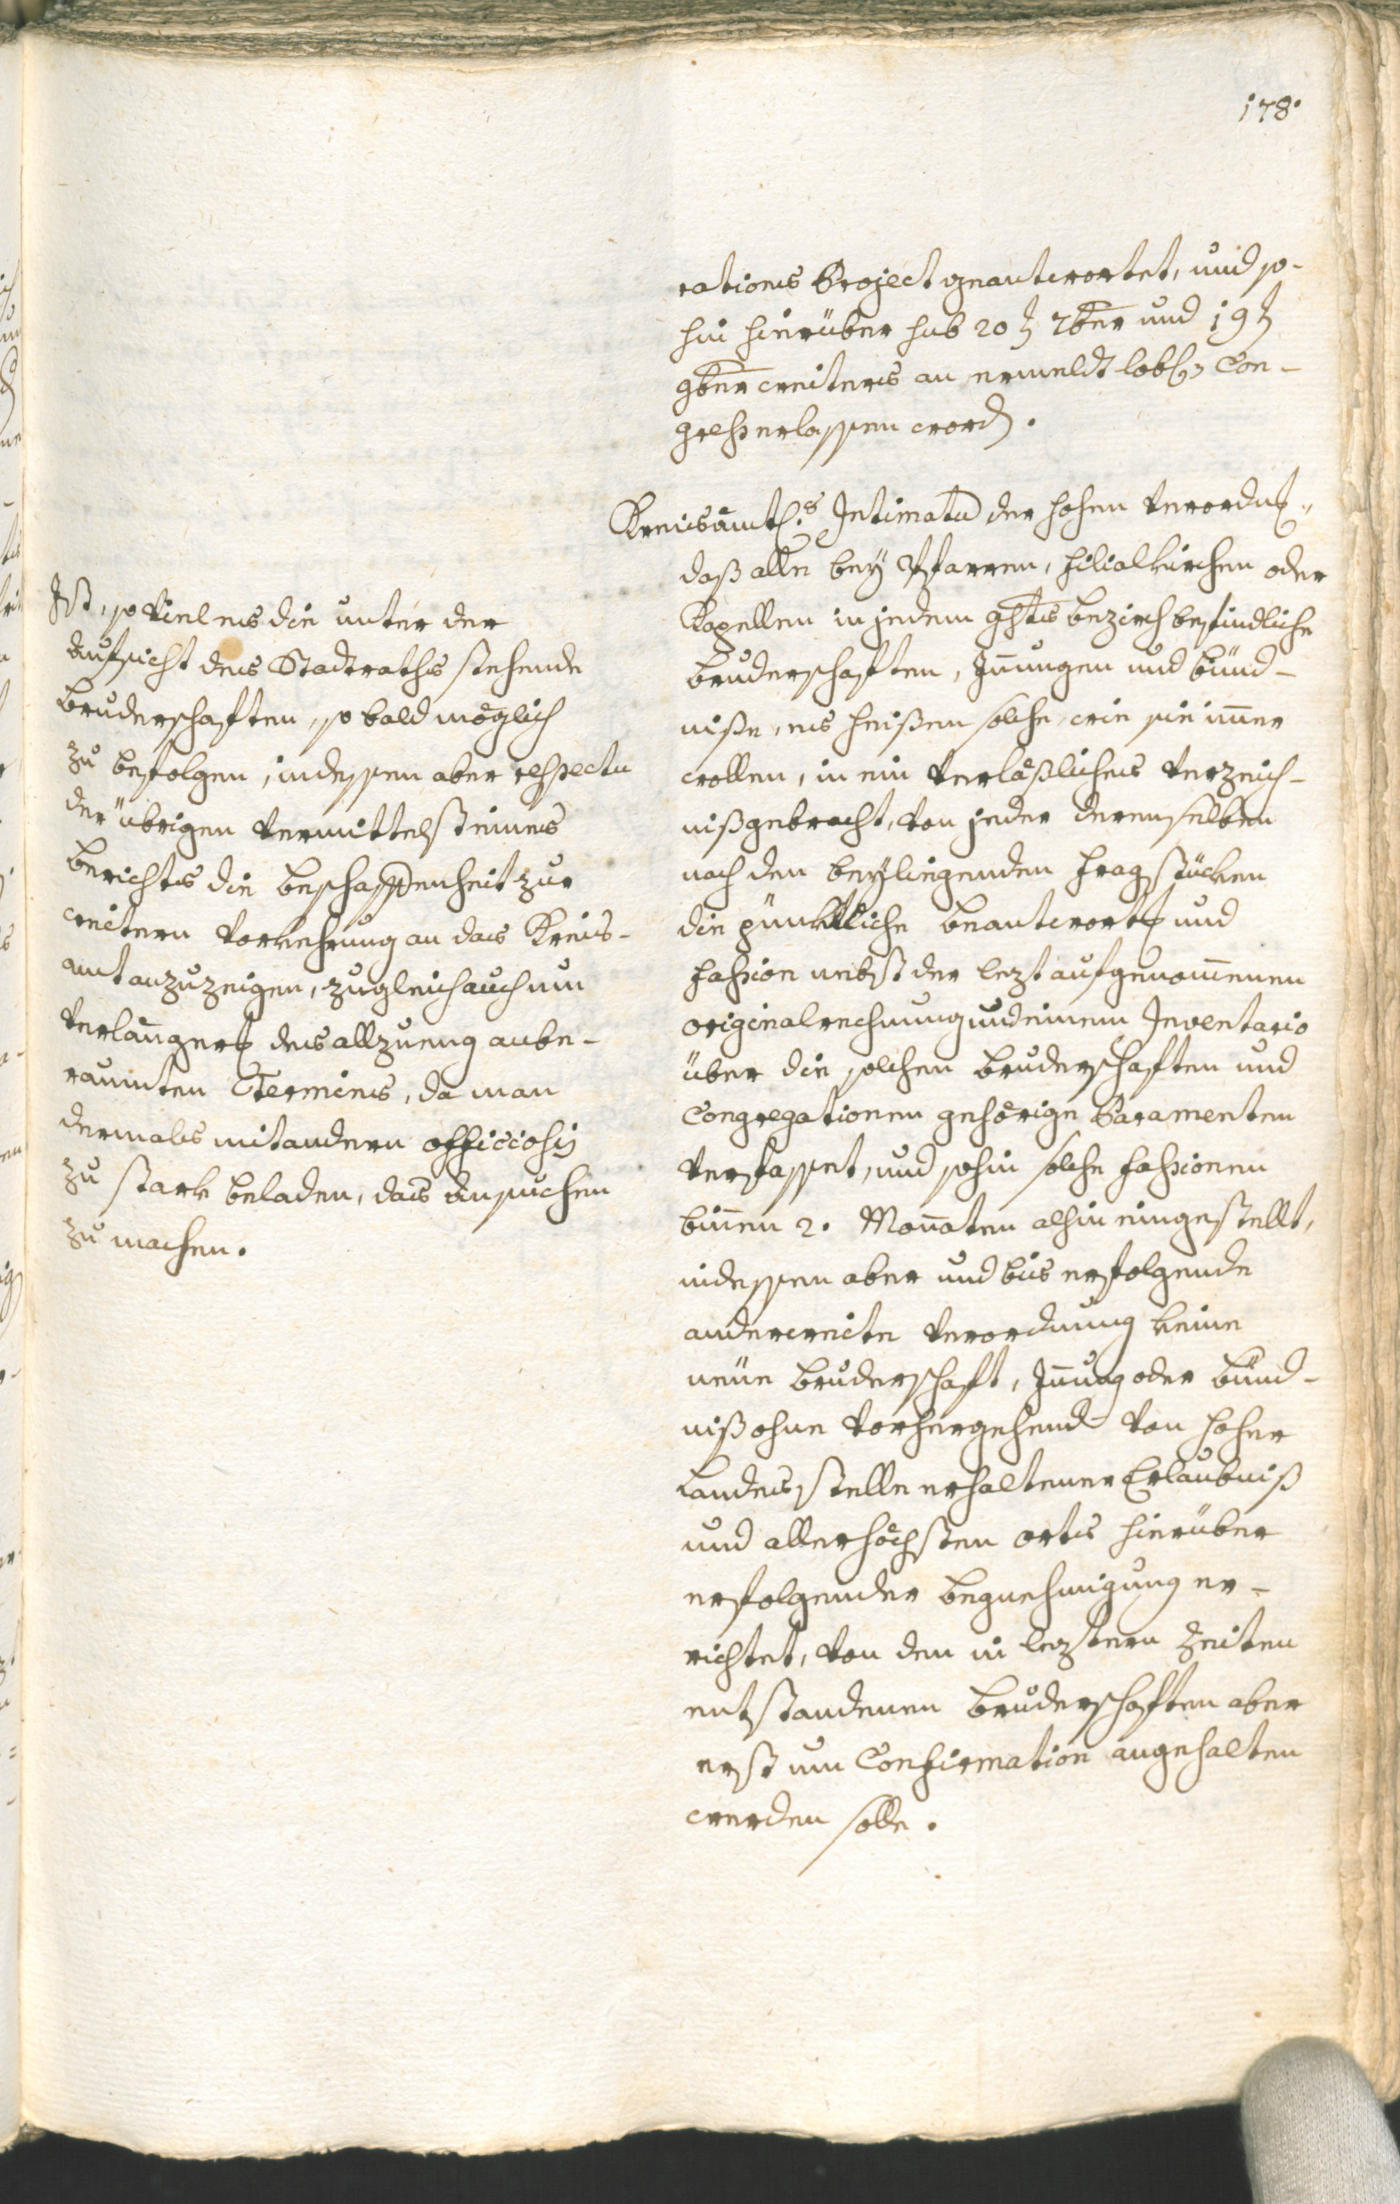 178.
rations Project gnantwortet, und so-
hin hierüber sub 20t 7ber und 19t
9ber weiters an ermeldt lobl. Con-
gress erlassen word.
Kreisämtl.s Intimatu der hohen Verordnug,
daß alle bey Pfarren, Filialkirchen oder
Kapellen in jedem ghts bezirch befindliche
bruderschaften, Innungen und bünd-
niße, es heißen solche, wie sie immer
wollen, in ein Verläßliches Verzeich-
niß gebracht, von jeder derenselben
nach den beyliegenden fragstücken
die pünktliche beantwortg und
Fassion nebst der lezt aufgenommenen
originalrechnung und einem Inventario
über die solchen bruderschaften und
Congregationen gehörige Paramenten
Verfasset, und sohin solche Fassionen
binnen 2. Monaten alhin eingestellt,
indessen aber und bis erfolgende
anderweite Verordnung keine
neüe bruderschaft, Innung oder bünd-
niß ohne vorhergehend von hoher
Landesstelle erhaltener Erlaubniß
und allerhöchsten orts hierüber
erfolgender begnehmigung er-
richtet, von den in leztern Zeiten
entstandenen bruderschaften aber
erst um Confirmation angehalten
werden solle.
Ist, so viel es die unter der
Aufsicht des Stadtraths stehende
bruderschaften, so bald möglich
zu befolgen, indessen aber respectu
der übrigen vermittelst eines
berichts die beschaffenheit zur
weitern Vorkehrung an das Kreis-
amt anzuzeigen, zugleich auch um
Verlängerg des allzueng anbe-
raumten Termins, da man
dermals mit andern officiosis
zu stark beladen, das Ansuchen
zu machen.